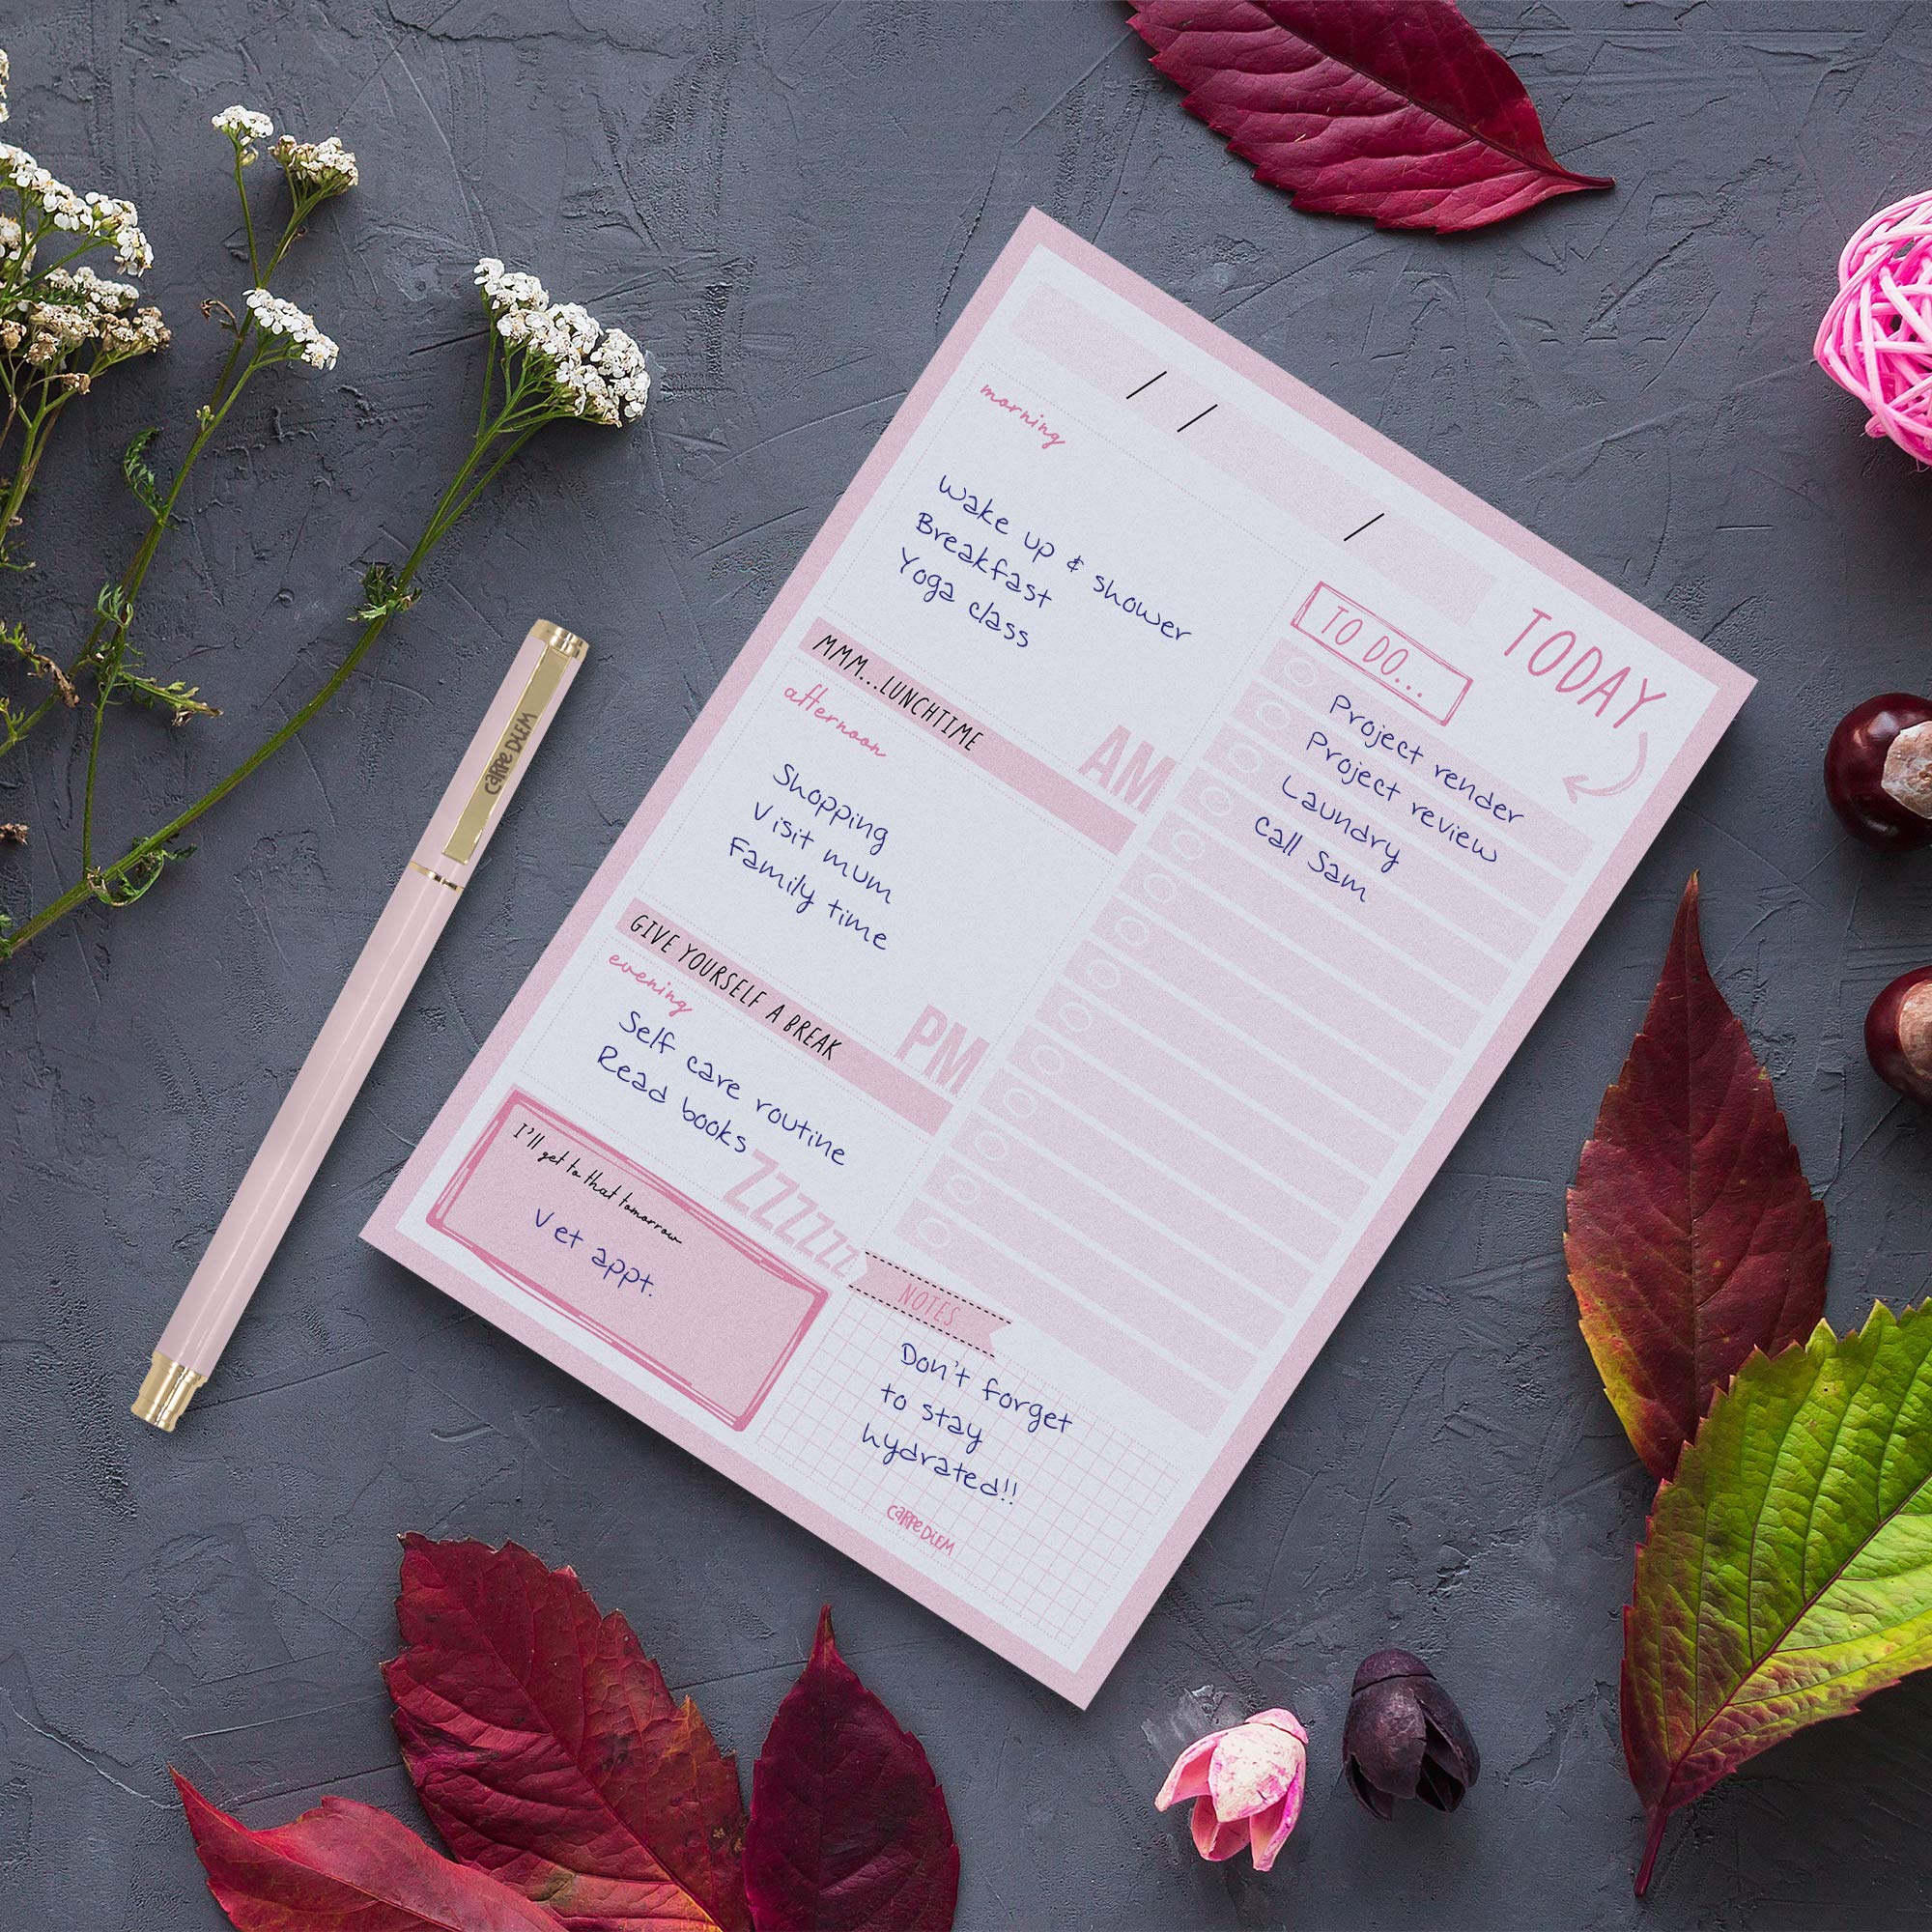 / / /
TODAY
morning
Wake up & shower
Breakfast
Yoga class
AM
MMM...LUNCHTIME
afternoon
Shopping
Visit mum
Family time
PM
GIVE YOURSELF A BREAK
evening
Self care routine
Read books
ZZZzzz
I'll get to that tomorrow
Vet appt.
TO DO...
Project render
Project review
Laundry
Call Sam
NOTES
Don't forget
to stay
hydrated!!
CARPE DIEM
CARPE DIEM